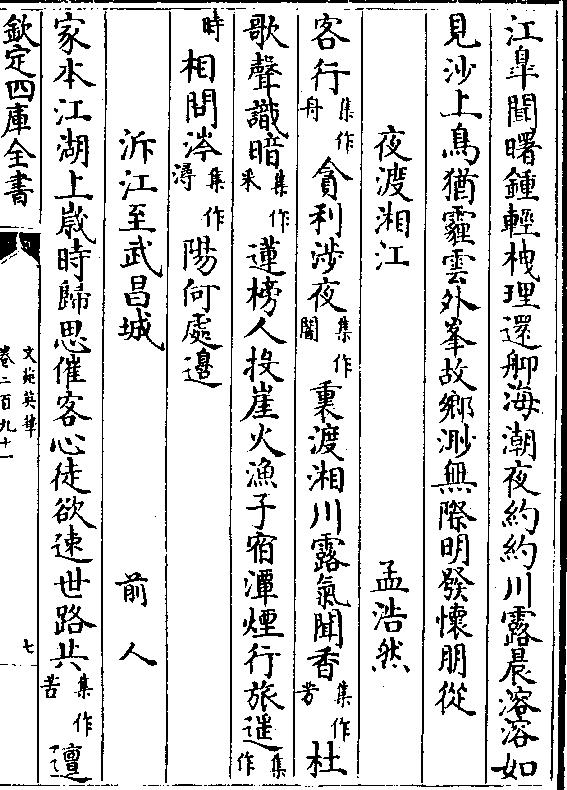 江臯聞曙鍾輕栧理還舼海潮夜約約川露晨溶溶如
見沙上鳥猶霾雲外峯故鄉渺無際明發懷朋從
夜渡湘江 孟浩然
客行集作舟貪利涉夜集作闇裏渡湘川露氣聞香集作芳杜
歌聲識暗集作采蓮榜人投崖火漁子宿潭煙行旅遥集作
時相問涔集作潯陽何處邉
泝江至武昌城 前人
家本江湖上歲時歸思催客心徒欲速世路共集作苦邅
欽定四庫全書
文苑英華
卷二百九十一
七